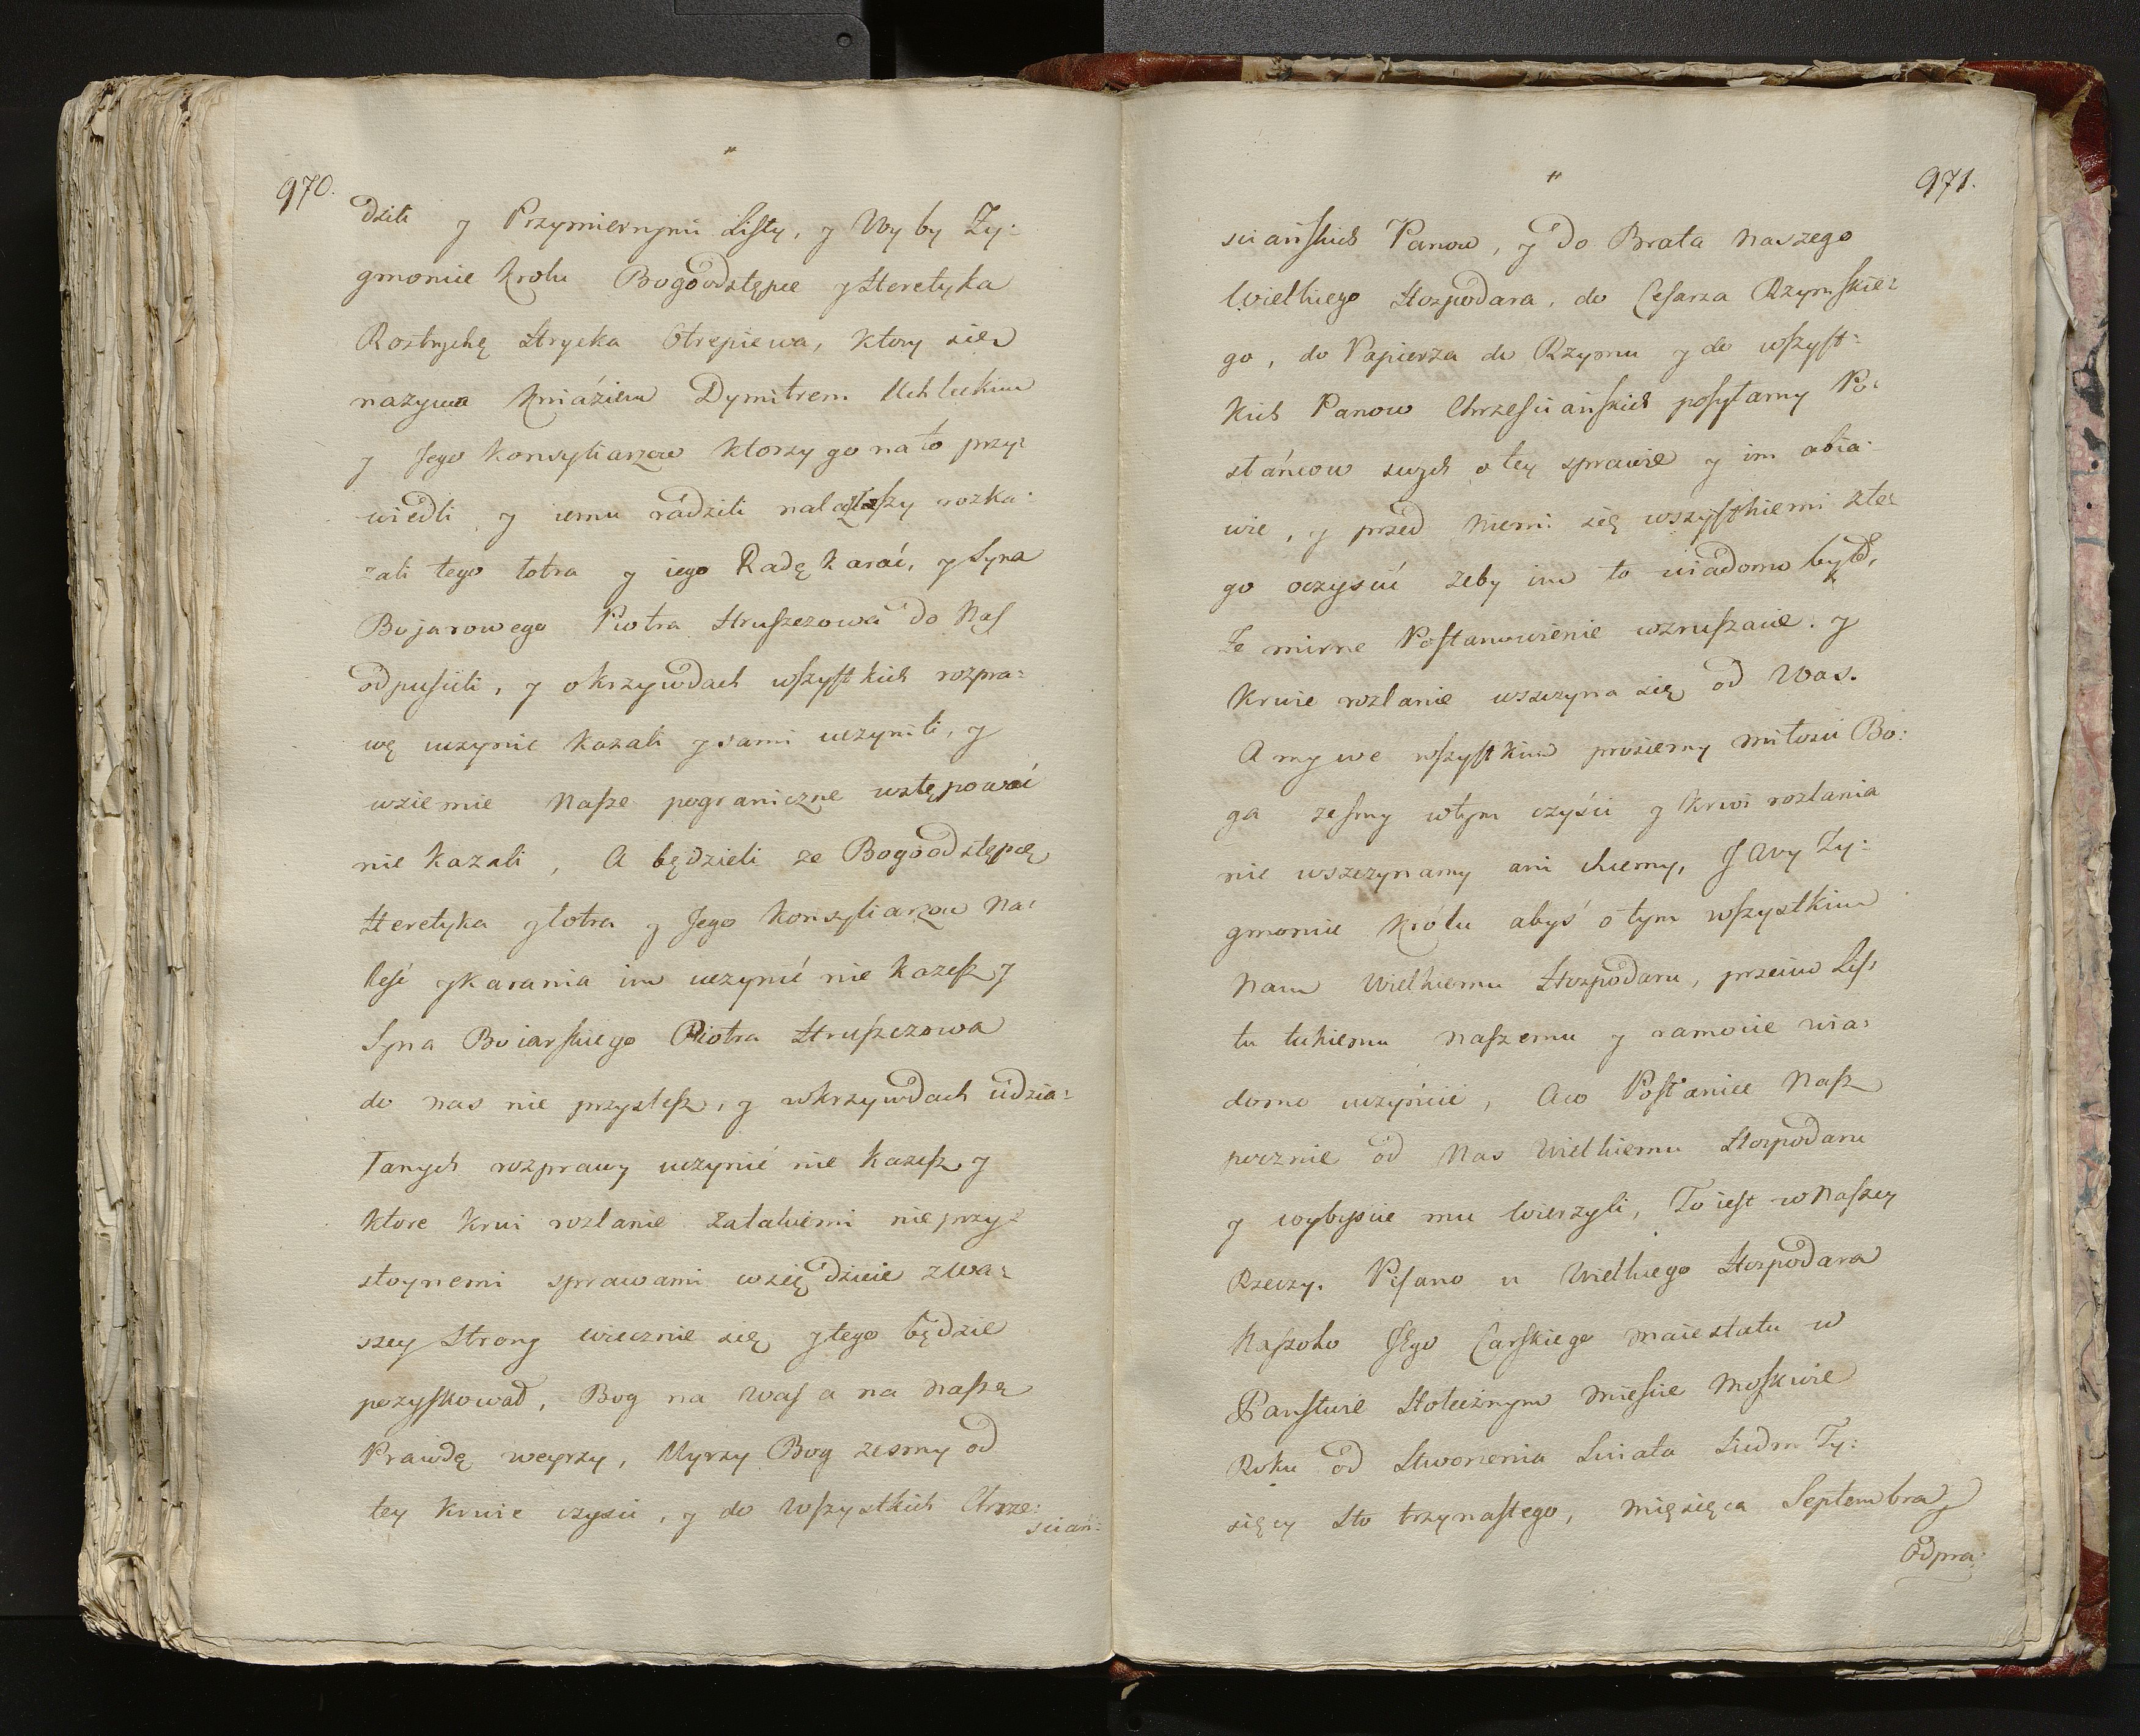 970.
dzili y Przymiernymi Listy, y Wy by Zy:
gmoncie Krolu Bogoodstępce y Heretyka
Rostrychę Hrycka Otrepiewa, ktory sie
nazywa Kniáziem Dymitrem Uhleckim
y Jego Konsyliarzow ktorzy go na to przy:
wiedli y iemu radzili nalazszy rozka:
zali tego łotra y iego Radę karać, y Syna
Bojarowego Piotra Hruszczowa do Nas
odpuścili, y o krzywdach wszystkich rozpra:
wę uczynic kazali y sami uczynili, y
wziemie Nasze pograniczne wstępować
nie kazali, A będzieli ze Bogoodstępcę
Heretyka y łotra y Jego Konsyliarzow na:
leść y karania im uczynić nie każesz y
Syna Boiarskiego Piotra Hruszczowa
do nas nie przyslesz, y w krzywdach udzia:
łanych rozprawy uczynić nie każesz y
ktore krwi rozlanie zatakiemi nieprzy:
stoynemi sprawami wziędzicie zwa:
szey Strony wiecznie się y tego będzie
pozyskował, Bog na was a na naszą
Prawdę weyrzy, Uyrzy Bog zesmy od
tey krwie czysci, y do Wszystkich Chrze:
scian:
971.
scianskich Panow, y do Brata naszego
Wielkiego Hospodara, do Cesarza Rzymskie:
go, do Papierza do Rzymu y do wszyst:
kich Panow Chrzescianskich posyłamy Po:
słáncow swych o tey sprawie y im obia:
wie, y przed niemi się wszystkiemi zte:
go oczyscić zeby im to wiadomo było,
Ze mirne Postanowienie wzruszacie. y
krwie rozlanie wszczyna się od Was.
A my we wszystkim prosiemy miłosci Bo:
ga zesmy wtym czyści y krwi rozlania
nie wszczynamy ani chcemy, J Wy Zy:
gmoncie Królu abyś o tym wszystkim
Nam Wielkiemu Hospodaru, przeciw Lis:
tu takiemu naszemu y ramocie wia:
domo uczyńcie, A co Posłaniec Nasz
pocznie od Nas Wielkiemu Hospodaru
y wybyscie mu wierzyli, To iest w Naszey
Rzeczy. Pisano u Wielkiego Hospodara
Naszoho JEgo Carskiego maiestatu w
Panstwie Stołecznym Miescie Moskwie
Roku od Stworzenia Swiata Siedm Ty:
sięcy sto trzynastego, Miesięca Septembra
Odpra: